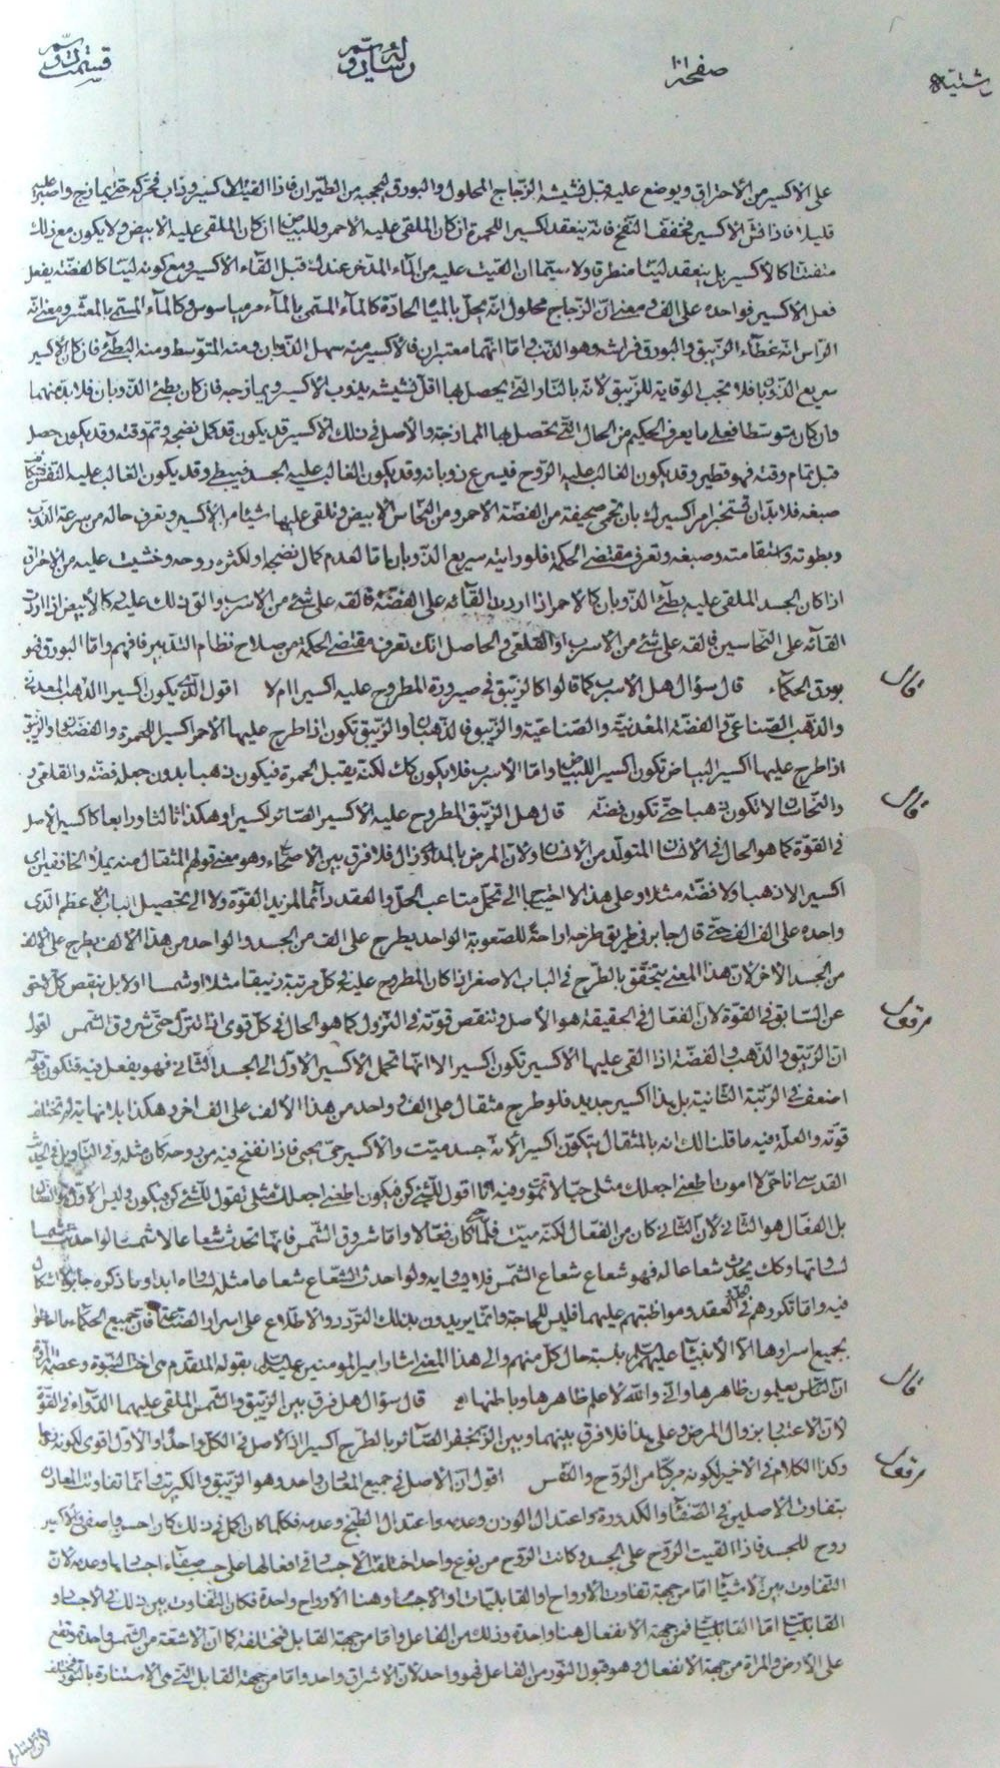 صفحه ١٠١
على الاكسير من الأحراق ويوضع عليه قبل الزجاج المحلول والبورق من الطيران فاذا القيت الاكسير وذاب
قليلا فاذا الأكسير فانه ينعقد اكسيرا للحمرة ان كان الملقى عليه الأحمر وللبياض ان كان الملقى عليه الأبيض ولا يكون مع ذلك
متفتتا كالأكسير بل ينعقد لينا منطرقا ولا سيما ان القيت عليه من الماء المدخر عندك قبل القاء الأكسير ومع كونه لينا كالفضة يفعل
فعل الأكسير فواحده على الف ومعنى ان الزجاج محلول انه يحل بالمياه الحادة كالماء المسمى بالماء وكالماء المسمى بالمعشر ومعنى انه
الرأس انه غطاء الزيبق والبورق فراشه وهو الذنب واما انهما معتبران فالأكسير منه سهل الذوبان ومنه المتوسط ومنه البطئ فان كان الأكسير
سريع الذوبان فلا يجب الوقاية للزيبق لأنه بالنار التي يحصل بها يذوب الاكسير ويمازجه فان كان بطئ الذوبان فلابد منهما
وان كان متوسطا فعلى ما يعرف الحكيم من الحال التي تحصل بها الممازجة والأصل في ذلك ان الأكسير قد يكون قد كمل نضجه وتم وقته وقد يكون حصل
قبل تمام وقته فهو فطير وقد يكون الغالب عليه الروح فيسرع ذوبانه وقد يكون الغالب عليه الجسد فيبطئ وقد يكون الغالب عليه النفس
صبغه فلابد ان تختبر امر اكسيرك بان تحمى صحيفة من الفضة الاحمر ومن النحاس الأبيض وتلقى عليها شيئا من الأكسير وتعرف حاله من سرعة الذوب
وبطوئه واستقامته وصبغه وتعرف مقتضى الحكمة فلو رايته سريع الذوبان اما لعدم كمال نضجه او لكثرة روحه وخشيت عليه من الاحراق
اذا كان الجسد الملقى عليه بطئ الذوبان كالاحمر اذا اردت القائه على الفضة فالقه على شئ من الاسرب والق ذلك عليه كالأبيض اذا اردت
القائه على النحاسين فالقه على شئ من الاسرب او القلعى والحاصل انك تعرف مقتضى الحكمة من صلاح نظام التدبير فافهم واما البورق فهو
بورق الحكماء قال سؤال هل الاسرب كما قالوا كالزيبق في صيرورة المطروح عليه اكسيرا ام لا اقول الذي يكون اكسيرا الذهب المعدني
والذهب الصناعي والفضة المعدنية والصناعية والزيبق فالذهبان والزيبق تكون اذا طرح عليها الأحمر اكسيرا للحمرة والفضتان والزيبق
اذا طرح عليها اكسير البياض تكون اكسيرا للبياض واما الاسرب فلا يكون كك لكنه يقبل الحمرة فيكون ذهبا بدون جعله فضة والقلعي
والنحاسان لا تكون ذهبا حتى تكون فضة قال هل الزيبق المطروح عليه الأكسير الصائر اكسيرا وهكذا ثالثا ورابعا كالاكسير الأصل
في القوة كما هو الحال في الانسان المتولد من الانسان ولأن المرض بالمداواة زال فلا فرق بين الاصحاء وهو معنى قولهم المثقال منه يملأ الخافقين اي
اكسيرا لا ذهبا ولا فضة مثلا وعلى هذا لا احتياج الى تحمل متاعب الحل والعقد دائما لمزيد القوة ولا الى تحصيل الباب الأعظم الذي
واحده على الف الف حتى قال جابر في طريق طرحه اراحة للصعوبة الواحد يطرح على الف من الجسد والواحد من هذا الألف يطرح على الألف
من الجسد الأخر لأن هذا المعنى يتحقق بالطرح في الباب الاصغر اذا كان المطروح عليه في كل مرتبة زيبقا مثلا او شمسا او لا بل ينقص كل لاحق
عن السابق في القوة لان الفعال في الحقيقة هو الأصل وتنقص قوته في النزول كما هو الحال في كل قوى اذا تنزل حتى شروق الشمس اقول
ان الزيبق والذهب والفضة اذا القى عليها الأكسير تكون اكسيرا الا انها تحمل الأكسير الأول الى الجسد الثاني فهو يفعل فيه فتكون قوته
اضعف في الرتبة الثانية بل هذا اكسير جديد فلو طرح مثقال على الف وواحد من هذا الألف على الف اخر وهكذا بلا نهاية لم تختلف
قوته والعلة فيه ما قلنا لك انه بالمثقال يتكون اكسيرا لأنه جسد ميت والأكسير حي يحيى فاذا نفخ فيه من روحه كان مثله وفي التأويل في الحديث
القدسي انا حي لا اموت اطعني اجعلك مثلي حيا لا تموت وفيه انا اقول للشئ كن فيكون اطعني اجعلك مثلي تقول للشئ كن فيكون وليس الأول هو الفعال
بل الفعال هو الثاني لأن الثاني كان من الفعال لكنه ميت فلما حيى كان فعالا واما شروق الشمس فانما تحدث شعاعا لا شمسا لو احدثت شمسا
لساوتها وكك يحدث شعاعا له فهو شعاع شعاع الشمس فلا يساويه ولو احدث الشعاع شعاعا مثله لساواه ابدا وما ذكره جابر لا اشكال
فيه واما تكررهم في الحل والعقد ومواظبتهم عليهما فليس للحاجة وانما يريدون بذلك التردد والاطلاع على اسرار الصناعة فان جميع الحكماء ما احاطوا
بجميع اسرارها الا الأنبياء عليهم السلم بنسبة حال كل منهم والى هذا المعنى اشار امير المؤمنين عليه السلم بقوله المتقدم هي اخت النبوة وعصمة المروة
ان الناس يعلمون ظاهرها واني والله لأعلم ظاهرها وباطنها قال سؤال هل فرق بين الزيبق والشمس الملقى عليهما الدواء في القوة
لأن الاعتبار بزوال المرض وعلى هذا فلا فرق بينهما وبين الزنجفر الصائر بالطرح اكسيرا اذ الأصل في الكل واحد او الأول اقوى لكونه روحا
وكذا الكلام في الأخير لكونه مركبا من الروح والنفس اقول ان الأصل في جميع المعادن واحد وهو الزيبق والكبريت وانما تفاوتت المعادن
بتفاوت الأصلين في الصفاء والكدورة واعتدال الوزن وعدمه واعتدال الطبخ وعدمه فكلما كان اكمل في ذلك كان احسن واصفى والأكسير
روح للجسد فاذا القيت الروح على الجسد وكانت الروح من نوع واحد اختلفت الأجساد في افعالها على حسب صفاء اجسامها وعدمه لأن
التفاوت بين الاشياء اما من جهة تفاوت الأرواح او القابليات او الاجساد وهنا الأرواح واحدة فكان التفاوت بين ذلك في الأجساد و
القابليات اما القابليات فمن جهة الانفعال هنا واحدة وذلك من الفاعل واما من جهة القابل فمختلفة كما ان الأشعة من الشمس واحدة وتقع
على الأرض والمرأة من جهة الانفعال وهو قبول النور من الفاعل فهو واحد لأن الاشراق واحد واما من جهة القابل التي هي الاستنارة بالنور فمختلف
قال
قال
اقول
قال
اقول